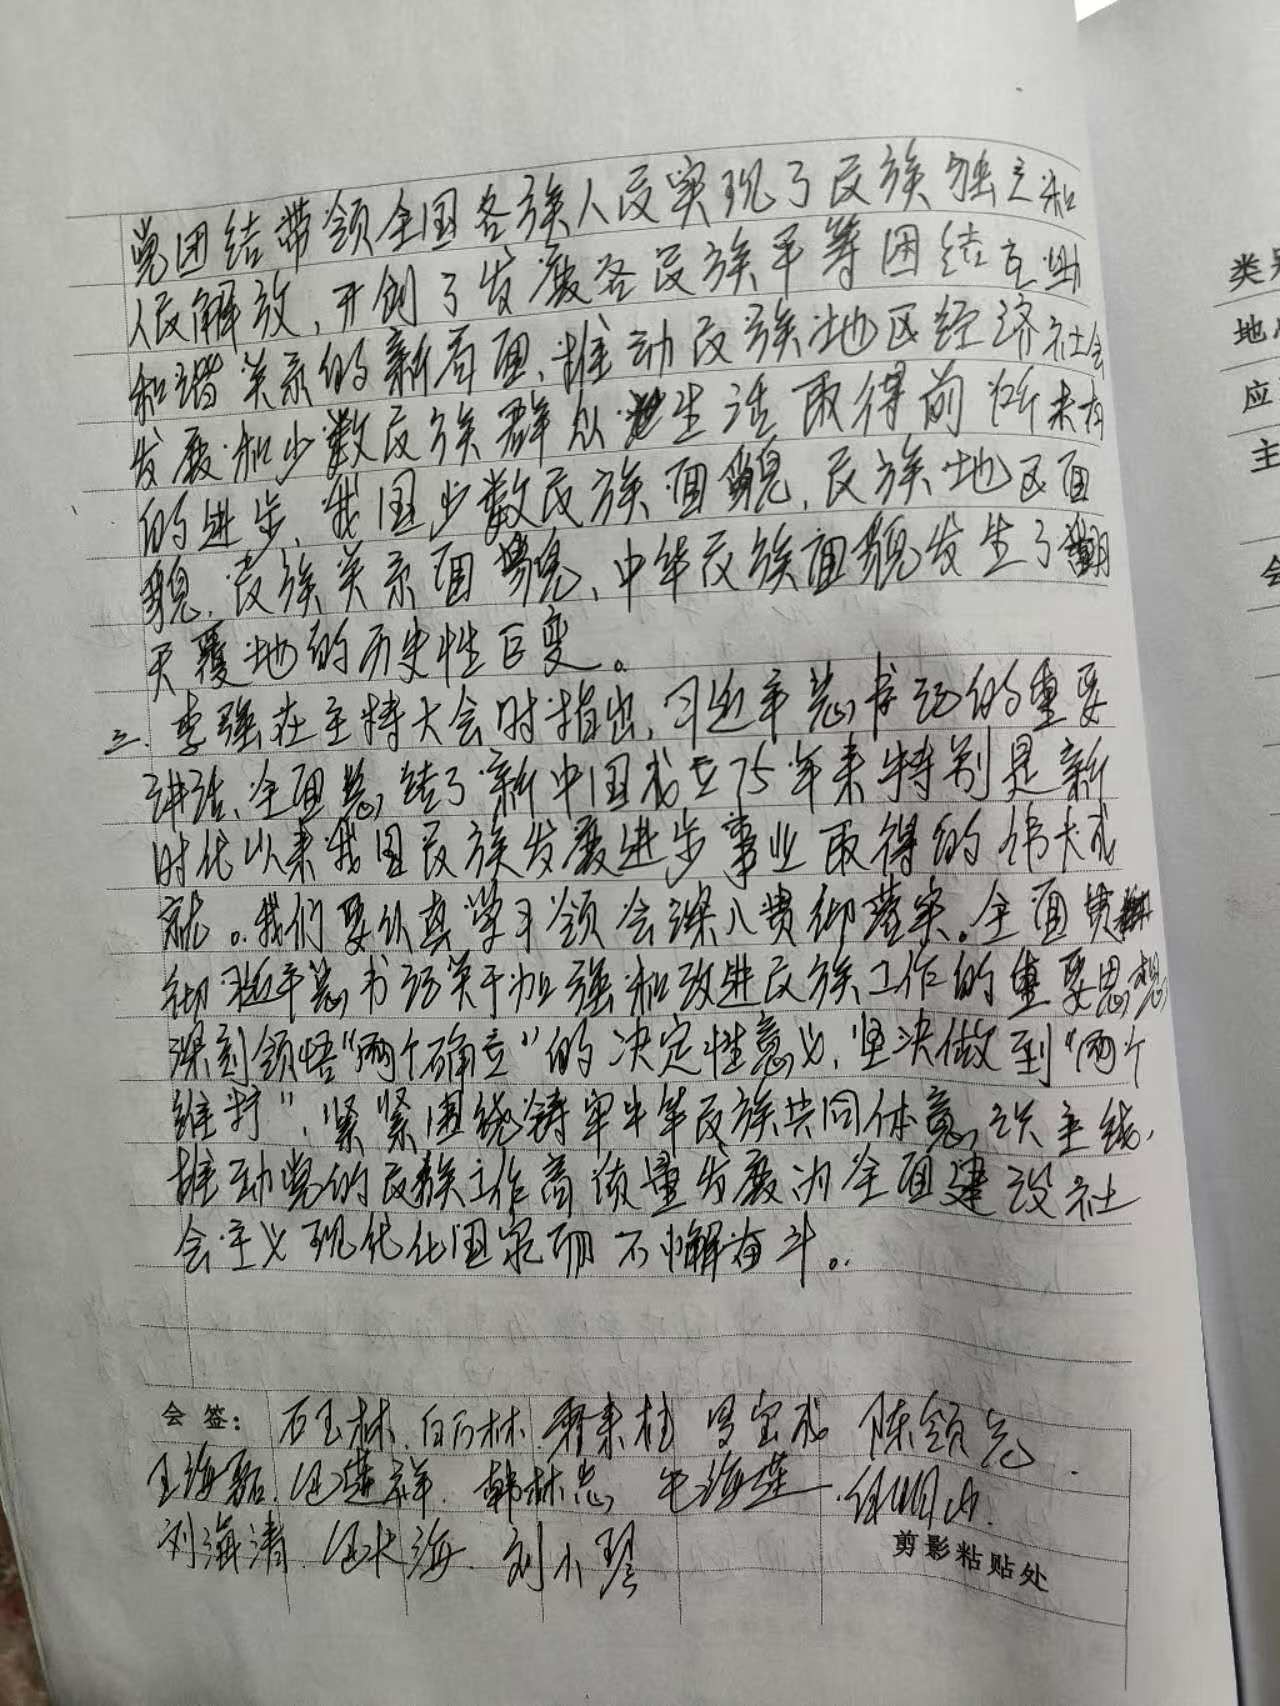 党团结带领全国各族人民实现了民族独立和
人民解放,开创了发展各民族平等团结互助
和谐关系的新局面、推动民族地区经济社会
发展和少数民族群众生活取得前所未有
的进步,我国少数民族面貌、民族地区面
貌、民族关系面貌、中华民族面貌发生了翻
天覆地的历史性巨变。
三、李强在主持大会时指出,习近平总书记的重要
讲话、全面总结了新中国成立75年来特别是新
时代以来我国民族发展进步事业取得的伟大成
就。我们要认真学习领会深入贯彻落实。全面贯
彻习近平总书记关于加强和改进民族工作的重要思想,
深刻领悟"两个确立"的决定性意义,坚决做到"两个
维护",紧紧围绕铸牢中华民族共同体意识主线,
推动党的民族工作高质量发展为全面建设社
会主义现代化国家而不懈奋斗。
会签: 石玉林 白万林 陈领元
王海磊 韩林总 毛海莲
刘海清 伍大海 刘小琴
剪影粘贴处
类
地
应
主
会